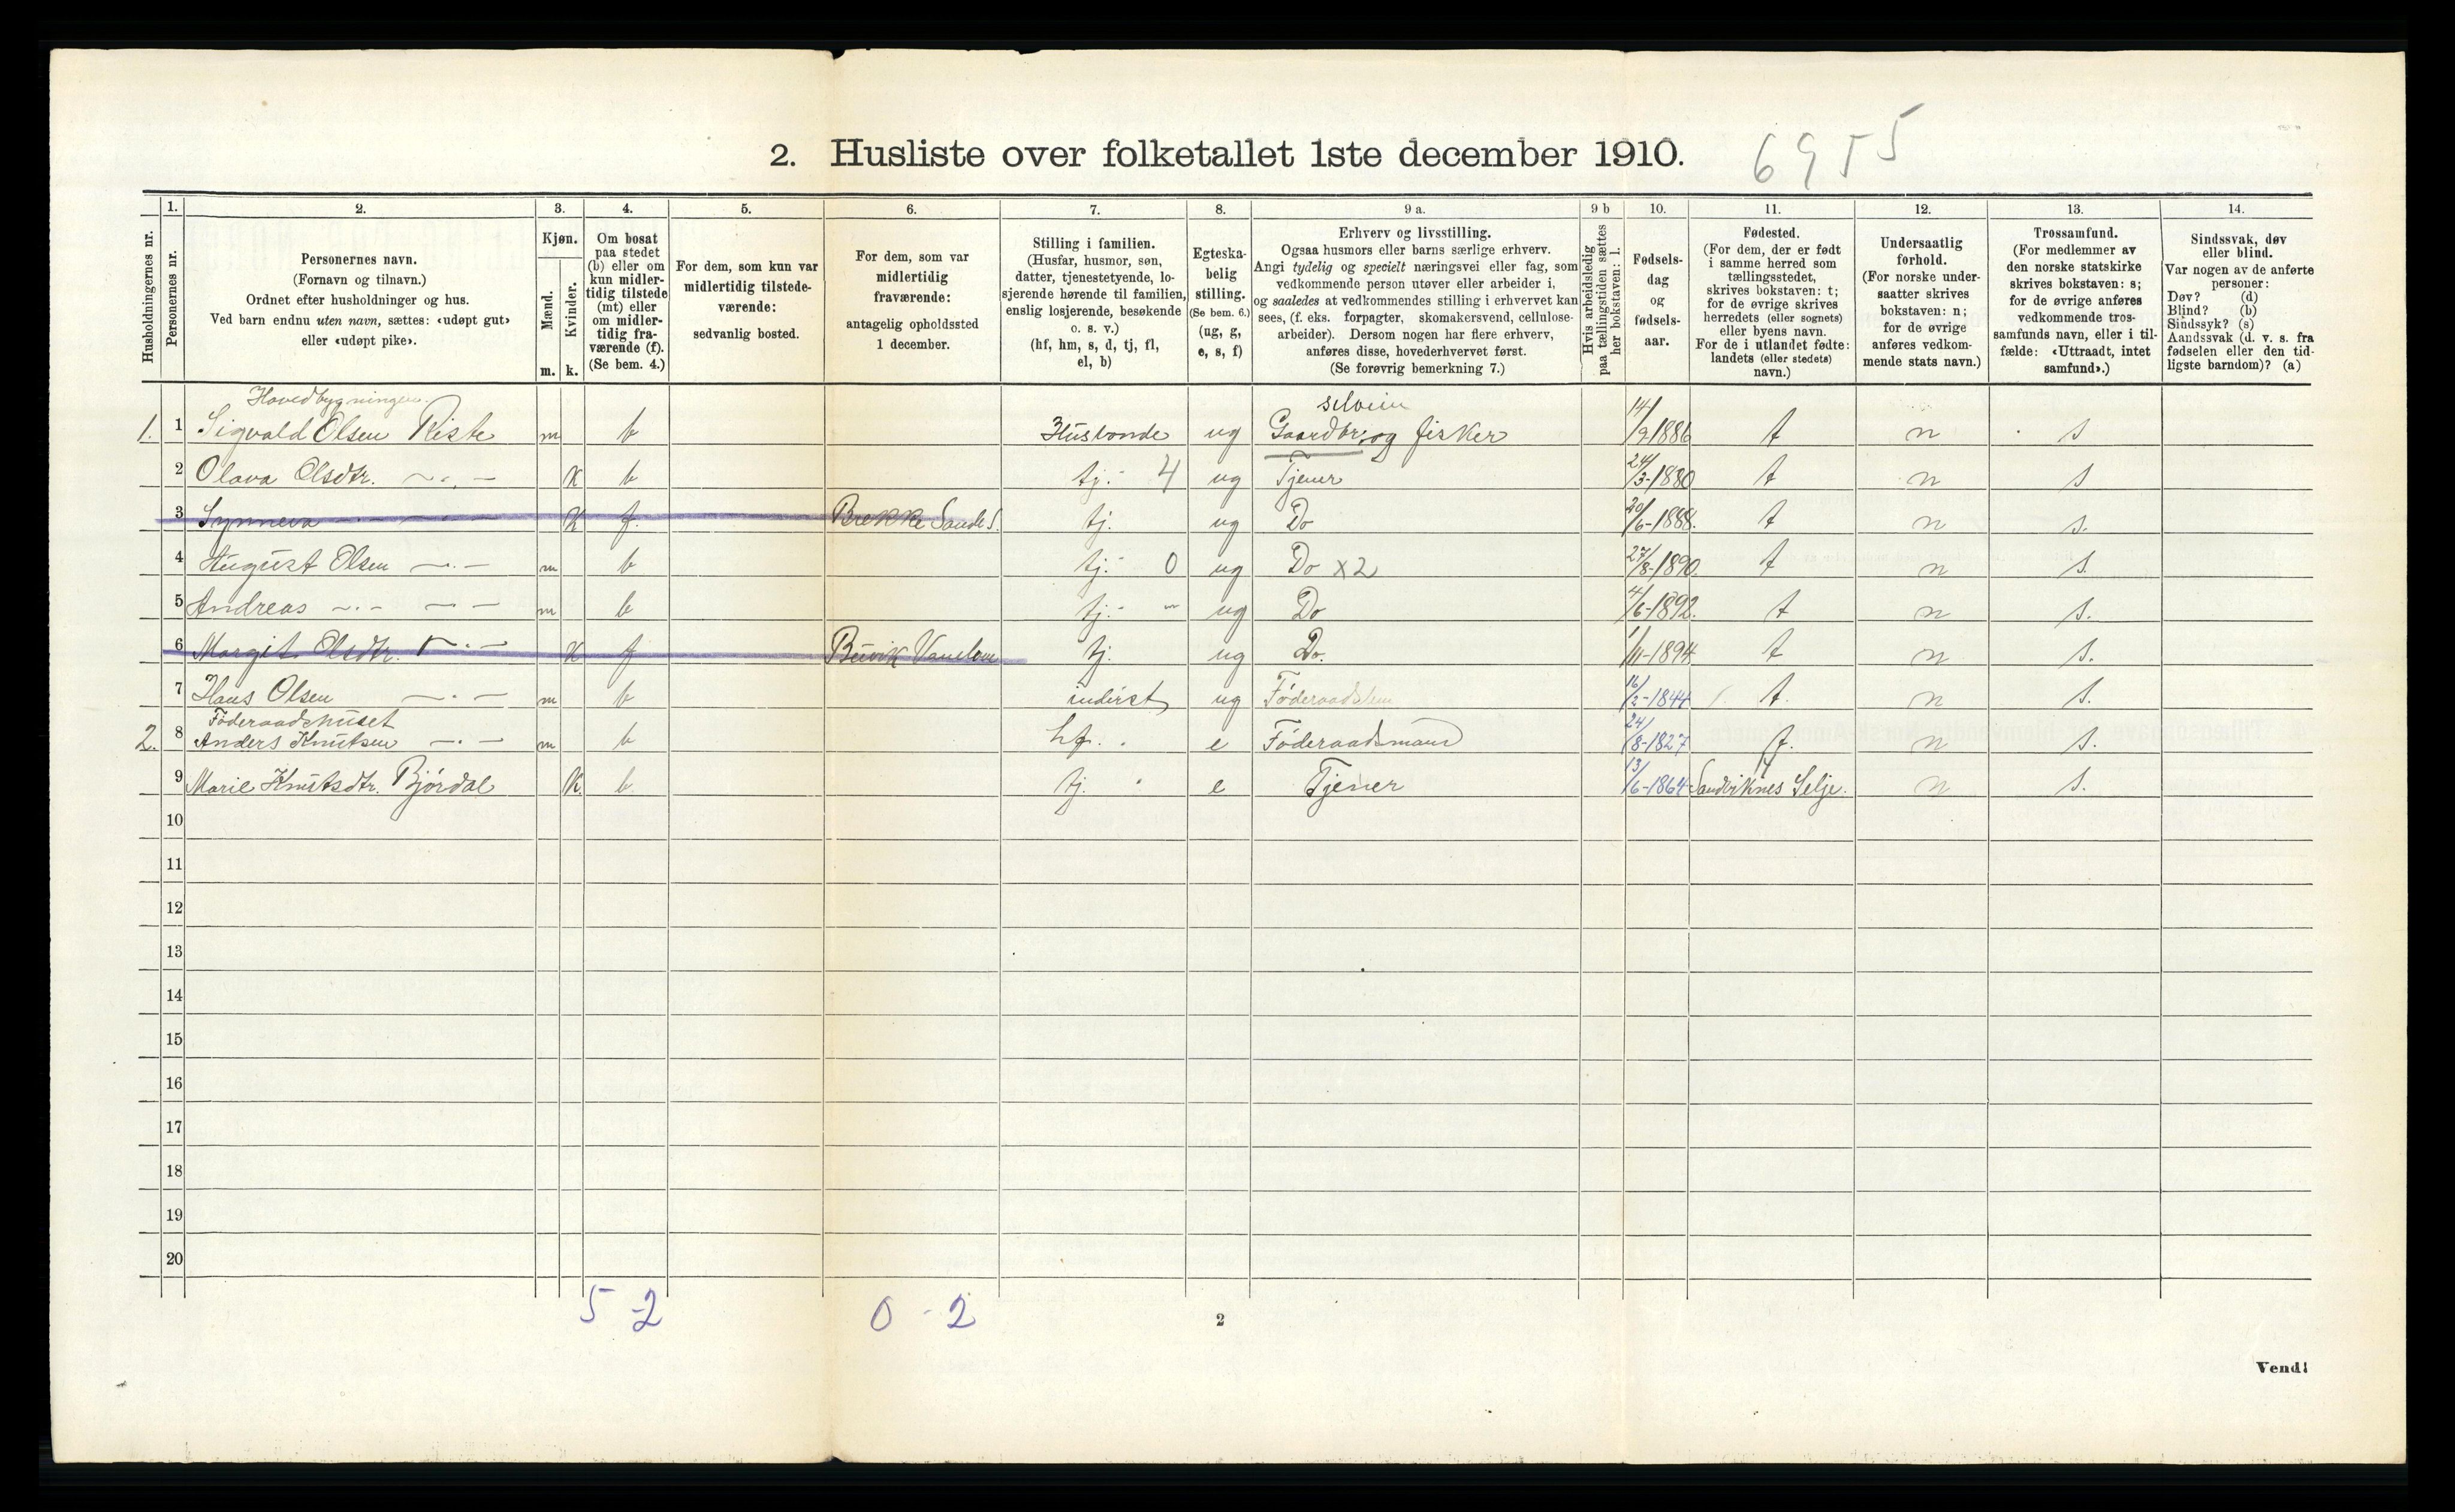 2. Husliste over folketallet 1ste december 1910.
6955
Husholdningernes nr.
1.
Personernes nr.
2.
Personernes navn.
(Fornavn og tilnavn.)
Ordnet efter husholdninger og hus.
Ved barn endnu uten navn, sættes: «udøpt gut»
eller «udøpt pike».
3.
Kjøn.
Mænd.
Kvinder.
m. k.
4.
Om bosat
paa stedet
(b) eller om
kun midler-
tidig tilstede
(mt) eller
om midler-
tidig fra-
værende (f).
(Se bem. 4.)
5.
For dem, som kun var
midlertidig tilstede-
værende:
sedvanlig bosted.
6.
For dem, som var
midlertidig
fraværende:
antagelig opholdssted
1 december.
7.
Stilling i familien.
(Husfar, husmor, søn,
datter, tjenestetyende, lo-
sjerende hørende til familien,
enslig losjerende, besøkende
o. s. v.)
(hf, hm, s, d, tj, fl,
el, b)
8.
Egteska-
belig
stilling.
(Se bem. 6.)
(ug, g,
e, s, f)
9 a.
Erhverv og livsstilling.
Ogsaa husmors eller barns særlige erhverv.
Angi tydelig og specielt næringsvei eller fag, som
vedkommende person utøver eller arbeider i,
og saaledes at vedkommendes stilling i erhvervet kan
sees, (f. eks. forpagter, skomakersvend, cellulose-
arbeider). Dersom nogen har flere erhverv,
anføres disse, hovederhvervet først.
(Se forøvrig bemerkning 7.)
9 b
Hvis arbeidsledig
paa tællingstiden sættes
her bokstaven: l.
10.
Fødsels-
dag
og
fødsels-
aar.
11.
Fødested.
(For dem, der er født
i samme herred som
tællingsstedet,
skrives bokstaven: t;
for de øvrige skrives
herredets (eller sognets)
eller byens navn.
For de i utlandet fødte:
landets (eller stedets)
navn.)
12.
Undersaatlig
forhold.
(For norske under-
saatter skrives
bokstaven: n;
for de øvrige
anføres vedkom-
mende stats navn.)
13.
Trossamfund.
(For medlemmer av
den norske statskirke
skrives bokstaven: s;
for de øvrige anføres
vedkommende tros-
samfunds navn, eller i til-
fælde: «Uttraadt, intet
samfund».)
14.
Sindssvak, døv
eller blind.
Var nogen av de anførte
personer:
Døv? (d)
Blind? (b)
Sindssyk? (s)
Aandssvak (d. v. s. fra
fødselen eller den tid-
ligste barndom)? (a)
Hovedbygningen. selveier
1. 1 Sigvald Olsen Riste m b Husbonde ug Gaardbr. og fisker 14/2 1886 t n s
2 Olava Olsdtr. — " — k b tj. 4 ug Tjener 24/3-1880 t n s
3 Synneva — " — K f. Brekke Sande S. tj. ug Do 20/6-1888. t n s.
4 August Olsen — " — m b tj. 0 ug Do x2 27/8-1890. t n s.
5 Andreas — " — — " — m b tj. " ug Do 4/6-1892. t n s.
6 Margit Olsdtr. — " — K f tj. ug Do. 1/11-1894 t n s.
7 Hans Olsen — " — m b inderst ug Føderaadsm 16/2-1844 t. n s.
Føderaadshuset
2. 8 Anders Knutsen — " — m b hf. e Føderaadsmand 24/8-1827 t. n s.
9 Marie Knutsdtr. Bjørdal K. b tj. e Tjener 13/6-1864 Sandviknes Selje. n s.
10
11
12
13
14
15
16
17
18
19
20
5-2 0-2
2
Vend!